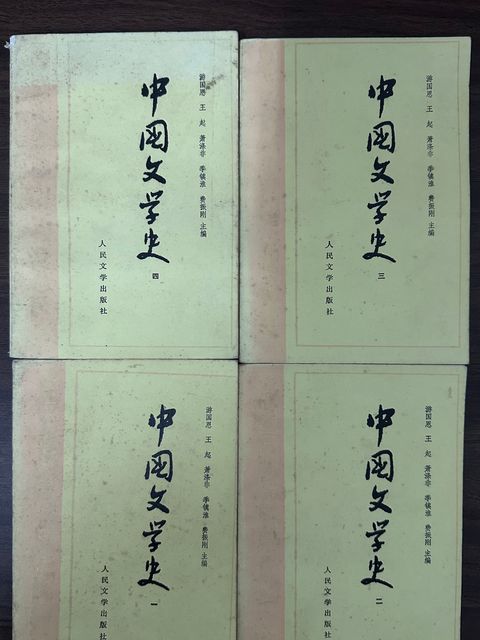 游国恩 王 起 萧涤非 季镇淮 费振刚 主编
中国文学史
四
人民文学出版社
游国恩 王 起 萧涤非 季镇淮 费振刚 主编
中国文学史
三
人民文学出版社
游国恩 王 起 萧涤非 季镇淮 费振刚 主编
中国文学史
一
人民文学出版社
游国恩 王 起 萧涤非 季镇淮 费振刚 主编
中国文学史
二
人民文学出版社